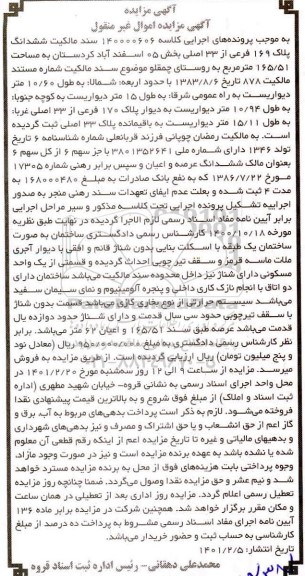 آگهی مزایده
آگهی مزایده اموال غیر منقول
به موجب پرونده‌های اجرایی کلاسه ۱۴۰۰۰۰۶۰۶ سند مالکیت ششدانگ
پلاک ۱۶۹ فرعی از ۳۳ اصلی بخش ۰۵ اسفند آباد کردستان به مساحت
۱۶۵/۵۱ مترمربع به روستای چمقلو موضوع سند مالکیت شماره مستند
مالکیت ۸۷۸ تاریخ ۱۳۸۳/۸/۶ با حدود اربعه: شمالا: به طول ۱۰/۶۰ متر
دیواریست به راه عمومی شرقا: به طول ۱۵ متر دیواریست به کوچه جنوبا:
به طول ۱۰/۹۴ متر دیواریست به دیوار پلاک ۱۷۰ فرعی از ۳۳ اصلی غربا:
به طول ۱۵/۱۱ متر دیواریست به باقیمانده پلاک ۳۳ اصلی ثبت گردیده
است. به مالکیت رمضان چوپانی فرزند قربانعلی شماره شناسنامه ۶ تاریخ
تولد ۱۳۴۶ دارای شماره ملی ۳۸۰۱۳۵۲۶۴۱ با جز سهم ۶ از کل سهم ۶
بعنوان مالک ششدانگ عرصه و اعیان و سپس برابر رهنی شماره ۱۷۳۰۵
مورخ ۱۳۸۶/۷/۲۲ که به نفع بانک صادرات به مبلغ ۱۶۸۰۰۰۴۸۰ به
مدت ۴ ثبت شده و بعلت عدم ایفای تعهدات سند رهنی منجر به صدور
اجراییه تشکیل پرونده اجرایی تحت کلاسه مذکور و سیر مراحل اجرایی
برابر آیین نامه مفاد اسناد رسمی لازم الاجرا گردیده در نهایت طبق نظریه
مورخه ۱۴۰۰/۱۰/۱۸ کارشناس رسمی دادگستری ساختمان به صورت
ساختمان یک طبقه با اسکلت بنایی بدون شناژ قائم و افقی با دیوار آجری
ملات ماسه قرمز و سقف تیر چوبی احداث گردیده و قسمتی از یک واحد
مسکونی دارای شناژ نیز داخل محدوده سند مالکیت می‌باشد ساختمان دارای
دو اتاق با انجام نازک کاری داخلی و پنجره آلومینیوم و نمای سیمان سفید
می‌باشد سیستم حرارتی از نوع بخاری گازی می‌باشد قسمت بدون شناژ
با سقف تیرچوبی حدود سی سال قدمت و دارای شناژ حدود دوازده یال
قدمت می‌باشد عرصه طبق سند ۱۶۵/۵۱ و اعیان ۶۲ متر می‌باشد. برابر
نظر کارشناس رسمی دادگستری به مبلغ ۹۵۰/۰۰۰/۰۰۰ ریال (معادل نود
و پنج میلیون تومان) ریال ارزیابی گردیده است. از طریق مزایده به فروش
میرسد. مزایده از ساعت ۹ الی ۱۲ روز سه‌شنبه مورخ ۱۴۰۱/۲/۲۰ در
محل واحد اجرای اسناد رسمی به نشانی قروه- خیابان شهید مطهری (اداره
ثبت اسناد و املاک) از مبلغ فوق شروع و به بالاترین قیمت پیشنهادی نقدا
فروخته می‌شود. لازم به ذکر است پرداخت بدهی‌های مربوط به آب، برق و
گاز اعم از حق انشعاب و یا حق اشتراک و مصرف و نیز بدهی‌های شهرداری
و بدهیهای مالیاتی و غیره تا تاریخ مزایده اعم از اینکه رقم قطعی آن معلوم
شده یا نشده باشد به عهده برنده مزایده است و نیز در صورت وجود مازاد،
وجوه پرداختی بابت هزینه‌های فوق از محل به برنده مزایده مسترد خواهد
شد و نیم عشر و حق مزایده نقدا وصول می‌گردد. ضمنا چنانچه روز مزایده
تعطیل رسمی اعلام گردد. مزایده روز اداری بعد از تعطیلی در همان ساعت
و مکان مقرر برگزار خواهد شد. همچنین شرکت در مزایده برابر ماده ۱۳۶
آیین نامه اجرای مفاد اسناد رسمی مشروط به پرداخت ده درصد از مبلغ
کارشناسی به حساب ثبت و حضور خریدار می‌باشد.
تاریخ انتشار: ۱۴۰۱/۲/۵
محمدعلی دهقانی- رئیس اداره ثبت اسناد قروه